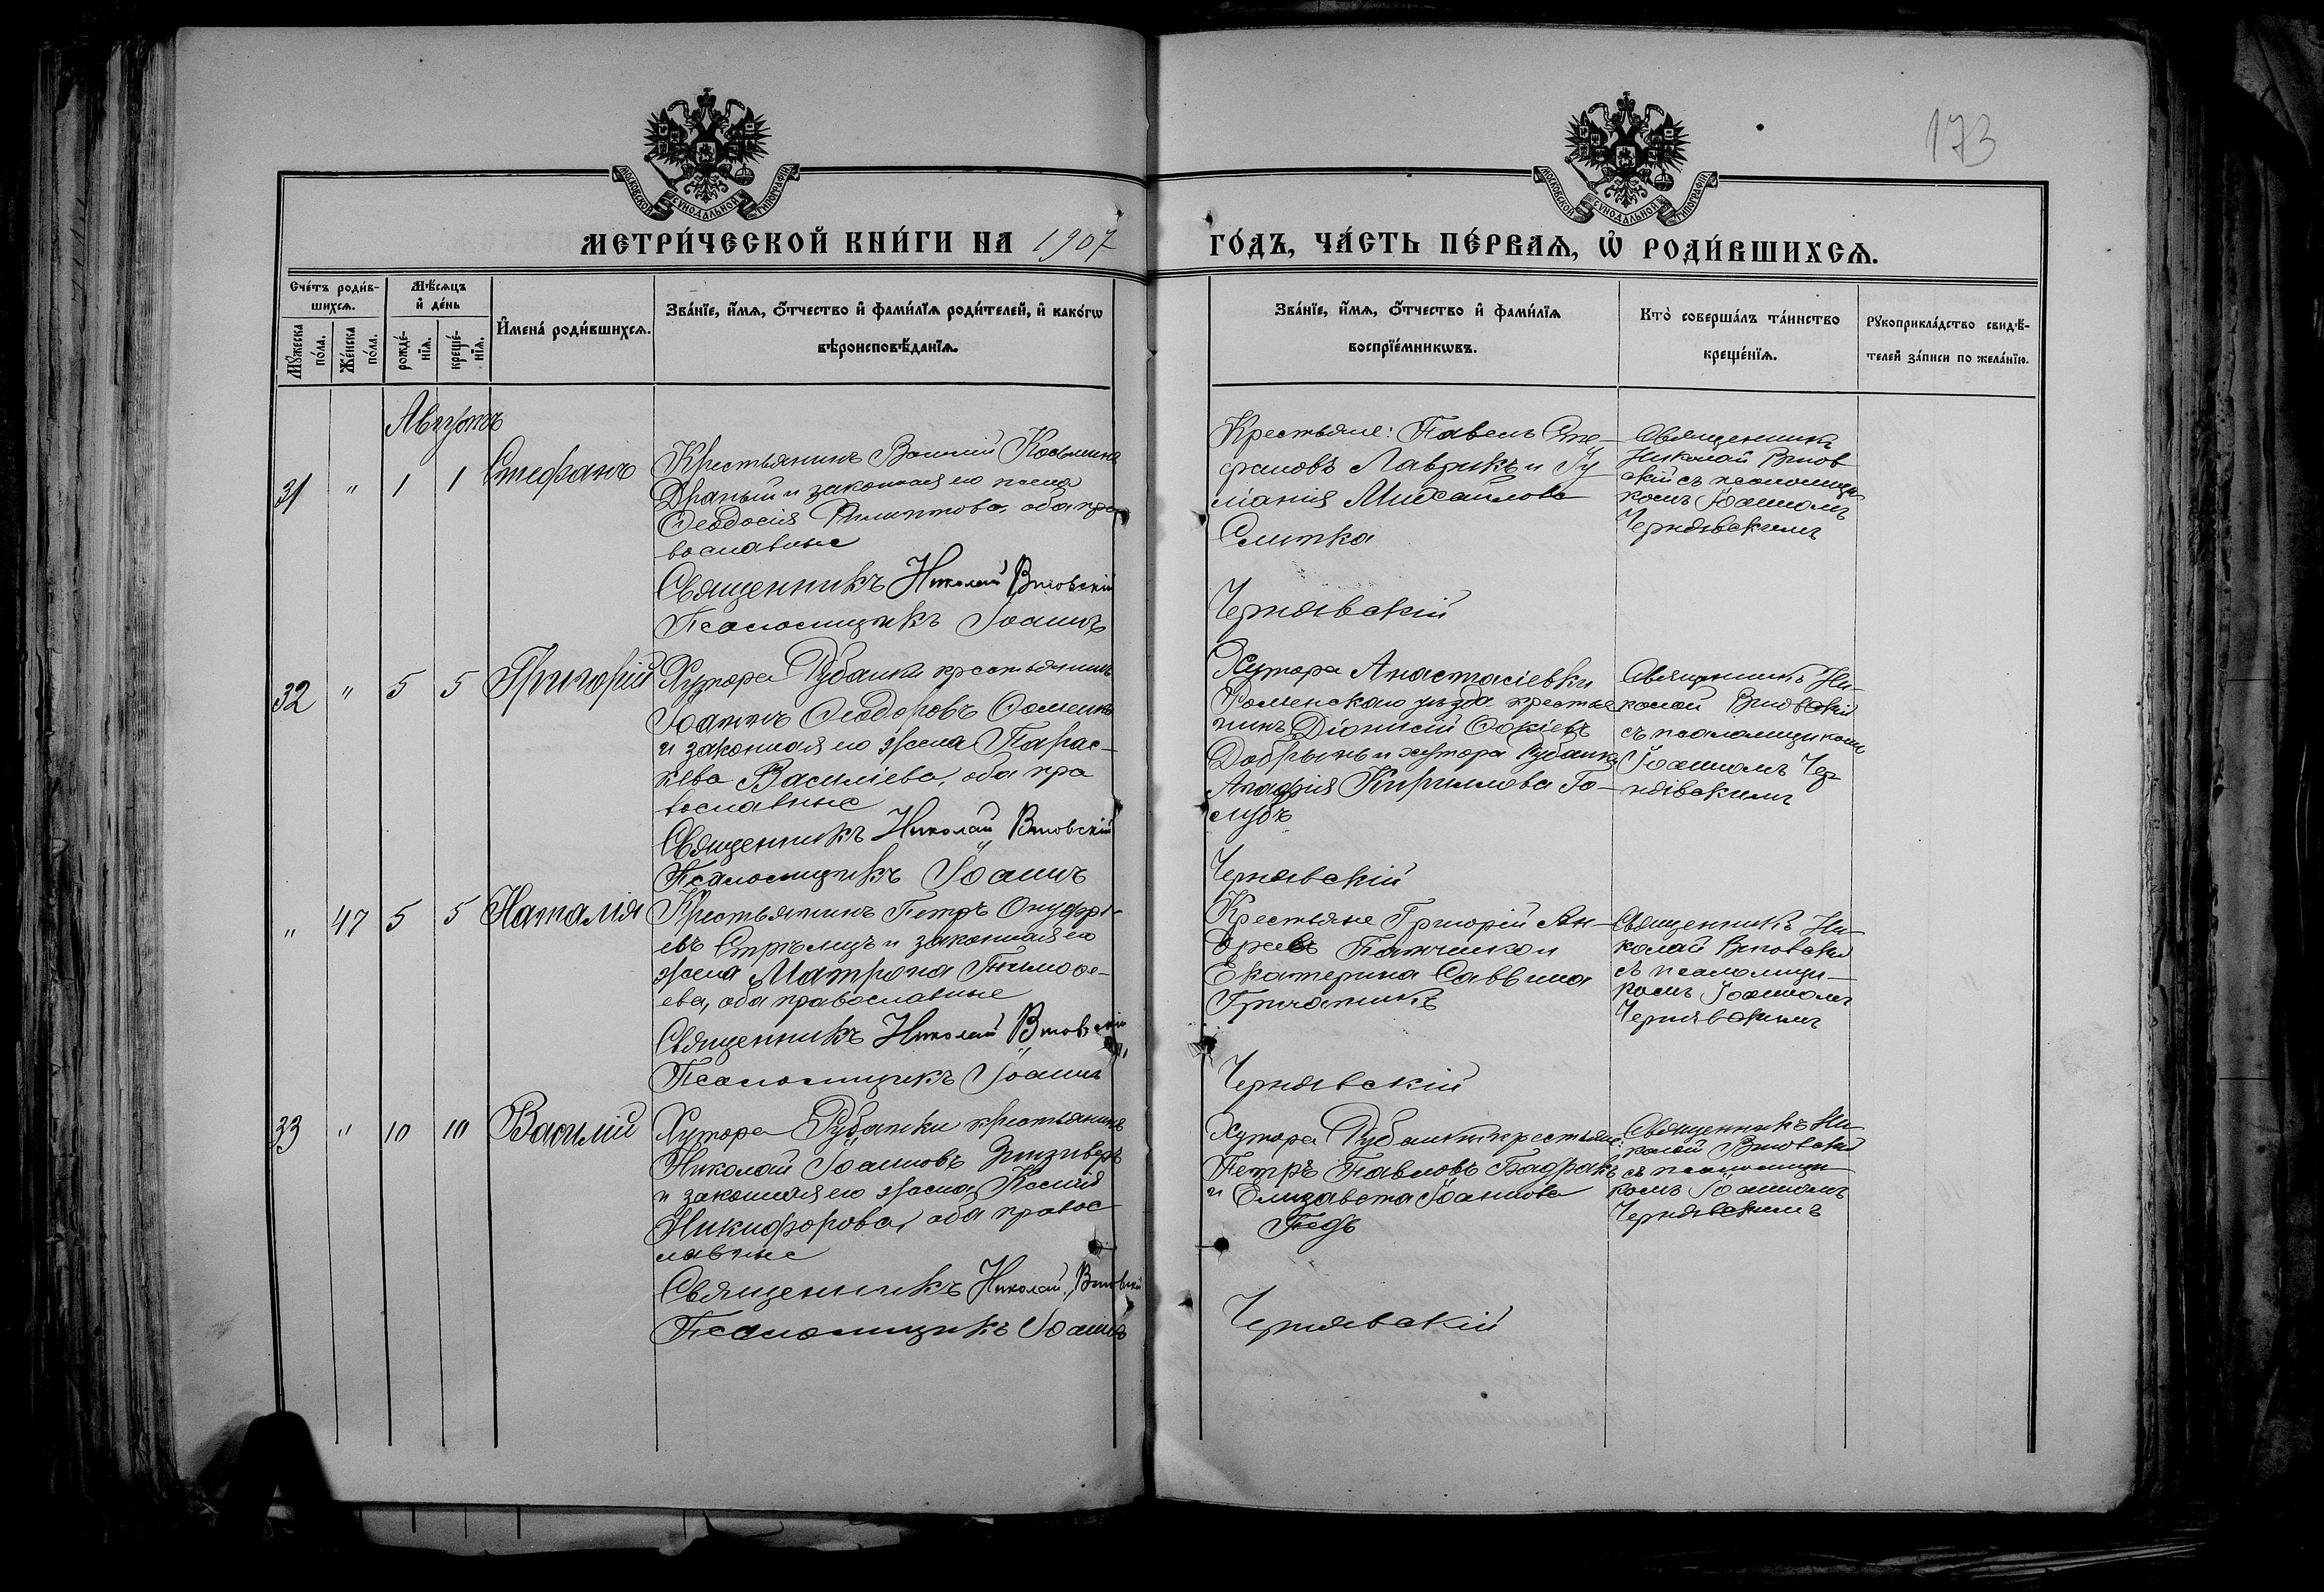 173
МОСКОВСКОЙ СѴНОДАЛЬНОЙ ТИПОГРАФІИ
МОСКОВСКОЙ СѴНОДАЛЬНОЙ ТИПОГРАФІИ
МЕТРИ́ЧЕСКОЙ КНИ́ГИ НА 1907
ГО́ДЪ, ЧА́СТЬ ПЕ́РВАѦ, Ѡ҆ РОДИ́ВШИХСѦ.
Сче́тъ роди́в-
шихсѧ.
Мѣ́сѧцъ
и҆ де́нь
Мꙋ́жеска по́ла.
Же́нска по́ла.
рожде́-
нїѧ.
креще́-
нїѧ.
И҆мена̀ роди́вшихсѧ.
Зва́нїе, и҆́мѧ, ѻ҆́тчество и҆ фами́лїѧ роди́телей, и҆ како́гѡ
вѣроисповѣ́данїѧ.
Зва́нїе, и҆́мѧ, ѻ҆́тчество и҆ фами́лїѧ
воспрїе́мникѡвъ.
Кто̀ соверша́лъ та́инство
креще́нїѧ.
Рꙋкоприкла́дство свидѣ́-
телей за́писи по жела́нїю.
Августъ
31 " 1 1 Стефанъ
Крестьянинъ Василій Косьминъ
и законная его жена
Ѳеодосія Филиппова, оба пра
вославные
Священникъ Николай
Псаломщикъ Іоаннъ
Крестьяне: Павелъ Сте-
фановъ Лаврикъ и Іу
ліанія Михайлова
Слитка
Священникъ
Николай
скій съ псаломщи
комъ Іоанномъ
Чернявскимъ
Чернявскій
32 " 5 5 Григорій
Хутора Рубанки крестьянинъ
Іоаннъ Ѳеодоровъ
и законная его жена Парас-
кева Василіева, оба пра
вославные
Священникъ Николай
Псаломщикъ Іоаннъ
Хутора Анастасіевки
Роменскаго уѣзда крестья
нинъ Діонисій
Добрынь и хутора Рубанки
Агафія Кириллова Го-
лубъ
Священникъ Ни-
колай
съ псаломщикомъ
Іоанномъ Чер-
нявскимъ
Чернявскій
" 47 5 5 Наталія
Крестьянинъ Петръ Онуфрі-
евъ Стрѣлецъ и законная его
жена Матрона Тимоѳе-
ева, оба православные
Священникъ Николай
Псаломщикъ Іоаннъ
Крестьяне Григорій Ан-
дреевъ и
Екатерина Саввина
Гричаникъ
Священникъ Ни-
колай
съ псаломщи-
комъ Іоанномъ
Чернявскимъ
Чернявскій
33 " 10 10 Василій
Хутора Рубанки крестьянинъ
Николай Іоанновъ Зинзиверъ
и законная его жена Ксенія
Никифорова, оба правос
лавные
Священникъ Николай
Псаломщикъ Іоаннъ
Хутора Рубанки крестьяне:
Петръ Павловъ Бадракъ
и Елизавета Іоаннова
Священникъ Ни-
колай
съ псаломщи
комъ Іоанномъ
Чернявскимъ
Чернявскій